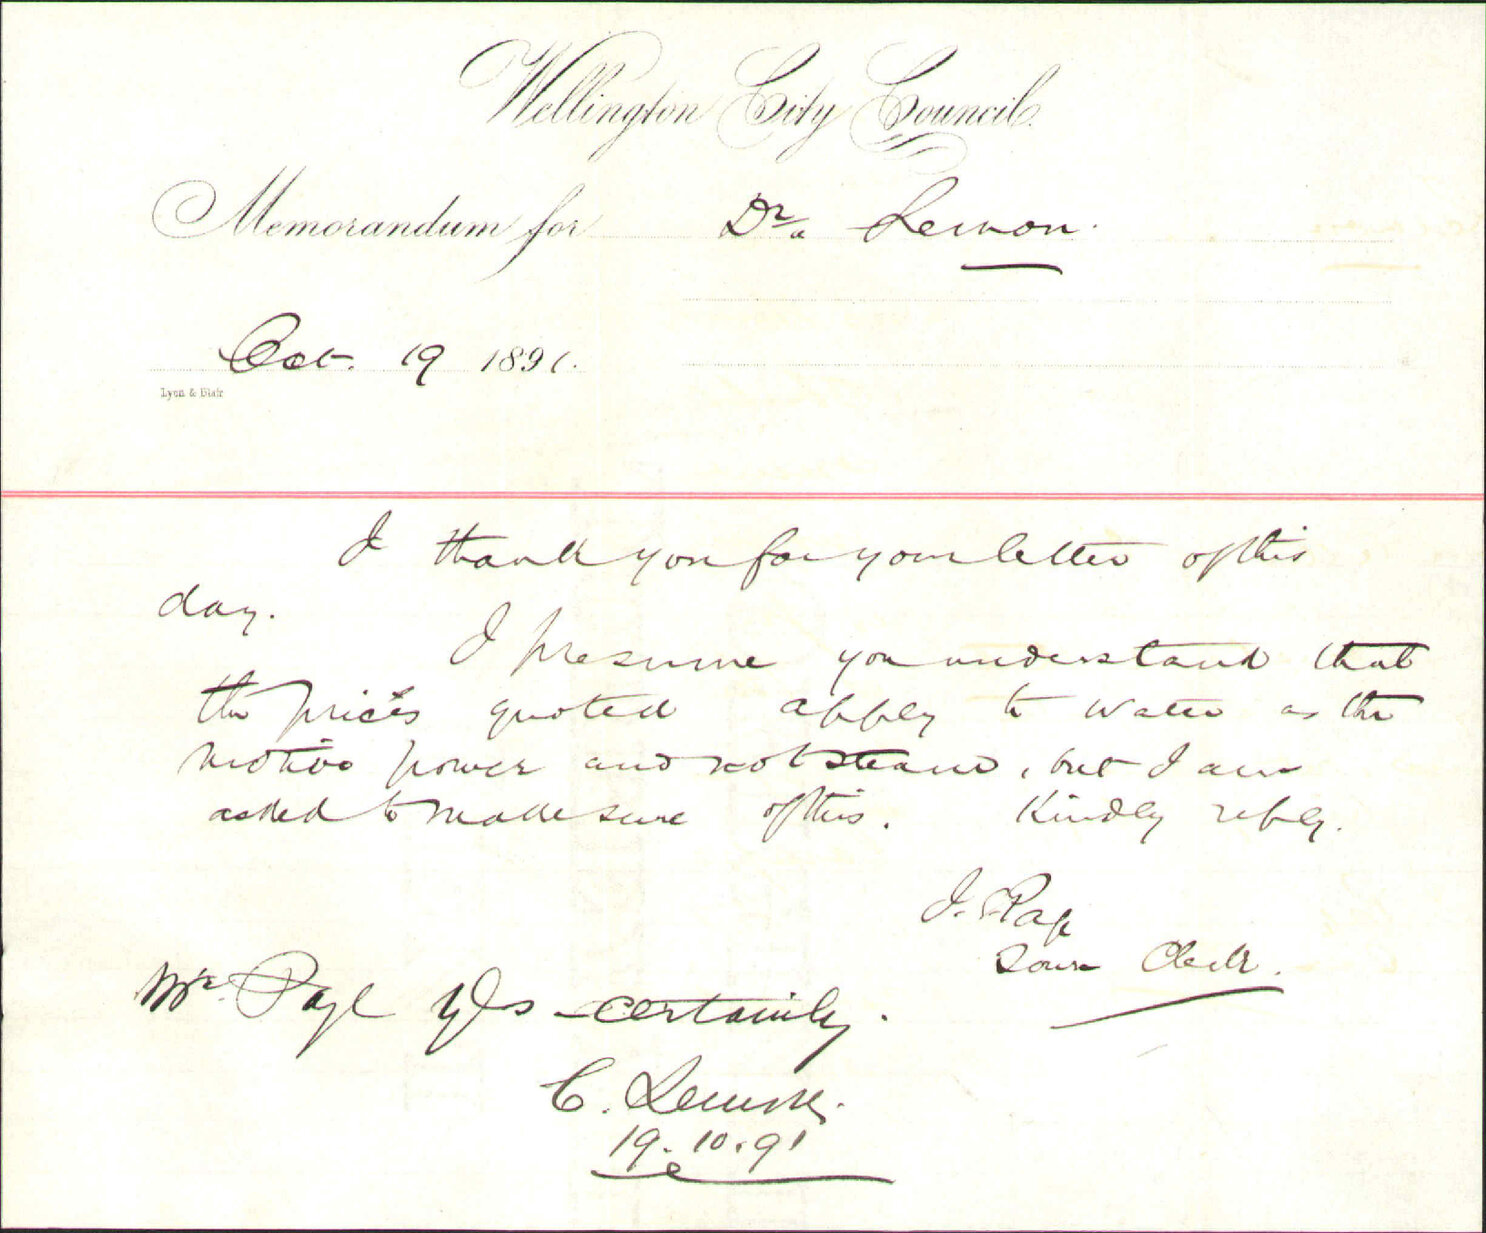 Wellington City Council.
Memorandum for Dr. Lemon.
Oct. 19 1891.
Lyon & Blair
I thank you for your letter of this
day.
I presume you understand that
the prices quoted apply to water as the
motive power and not steam, but I am
asked to make sure of this. Kindly reply.
J. Page
Town Clerk.
Mr. Page yes - certainly.
C. Lemon.
19.10.91